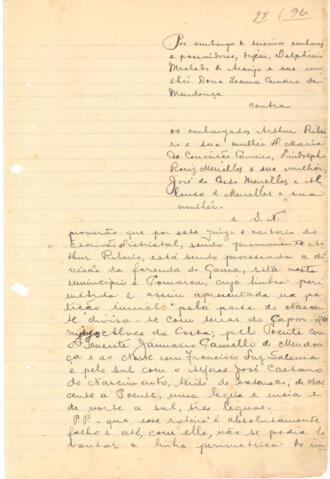 97 / 96
Por embargo de
e possuidores, dizem, Delphino
Machado de Araujo e sua mu-
lher Dona Joanna Carneiro de
Mendonça
contra
os embargados Arthur Ribei-
ro e sua mulher D. Maria
da Conceição Carneiro, Lindolpho
Roriz Meirelles e sua mulher,
José da Costa Meirelles e Al
fonso de Meirelles e sua
mulher.
e S. N.
provarão que por este Juizo e cartorio do
Escrivão Districtal, sendo promovente Ar-
thur Ribeiro, está sendo processada a di-
visão da fazenda do Gama, sita neste
municipio e Comarca, cuja linha peri-
metrica é assim apresentada na pe-
tição inicial: "pela parte do Nascen-
te divisa-se com terras do Capm. Do-
mingos Alves da Costa; pelo Poente com
o Tenente Januario Camello de Mendon-
ça e ao Norte com Francisco Luz Salerma
e pelo sul com o Alferes José Caetano
do Nascimento, tendo de extensão, de nas-
cente a Poente, uma legua e meia e
de norte a sul, tres leguas.
P.P. que esse roteiro é absolutamente
falho e até, com elle, não se podia le-
vantar a linha perimetrica do im-